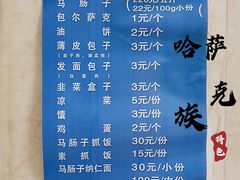 马肠子
220元/公斤
22元/100g小份
包尔萨克 1元/个
油饼 2元/个
薄皮包子 3元/个
发面包子 3元/个
韭菜盒子 3元/个
凉菜 5元/份
馕 3元/个
鸡蛋 2元/个
马肠子抓饭 30元/份
素抓饭 15元/份
马肠子纳仁面 30元/小份
哈萨克族
特色